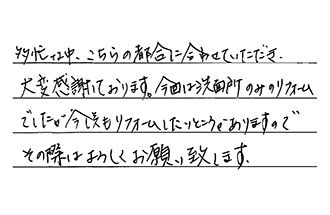 多忙な中、こちらの都合に合わせていただき、
大変感謝しております。今回は洗面所のみのリフォーム
でしたが今後もリフォームしたいところがありますので
その際はよろしくお願い致します。